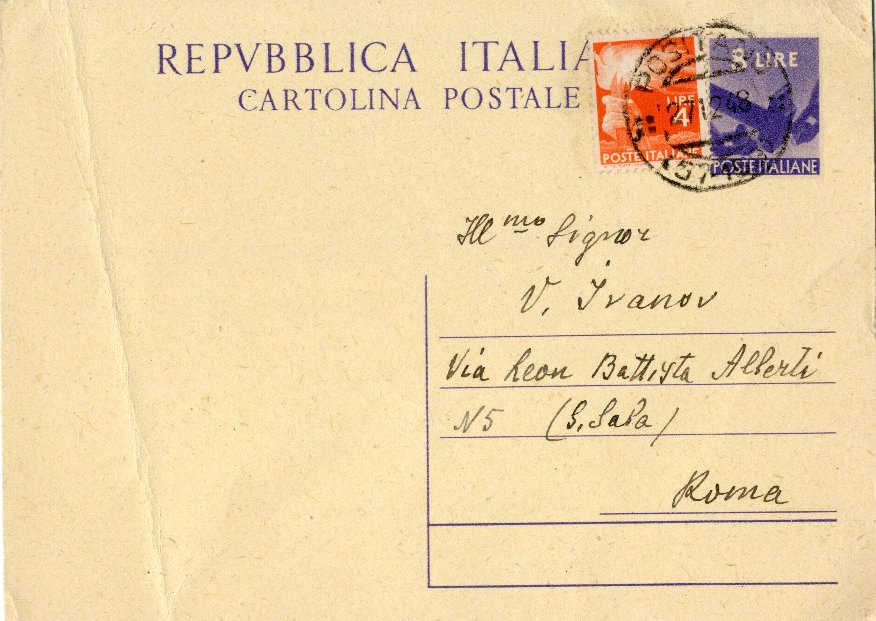 REPVBBLICA ITALIA
CARTOLINA POSTALE
LIRE
4
POSTE ITALIANE
8 LIRE
POSTE ITALIANE
POSITANO
27 12 48
Ill mo Signor
V. Ivanov
Via Leon Battista Alberti
N5 (S. Saba)
Roma